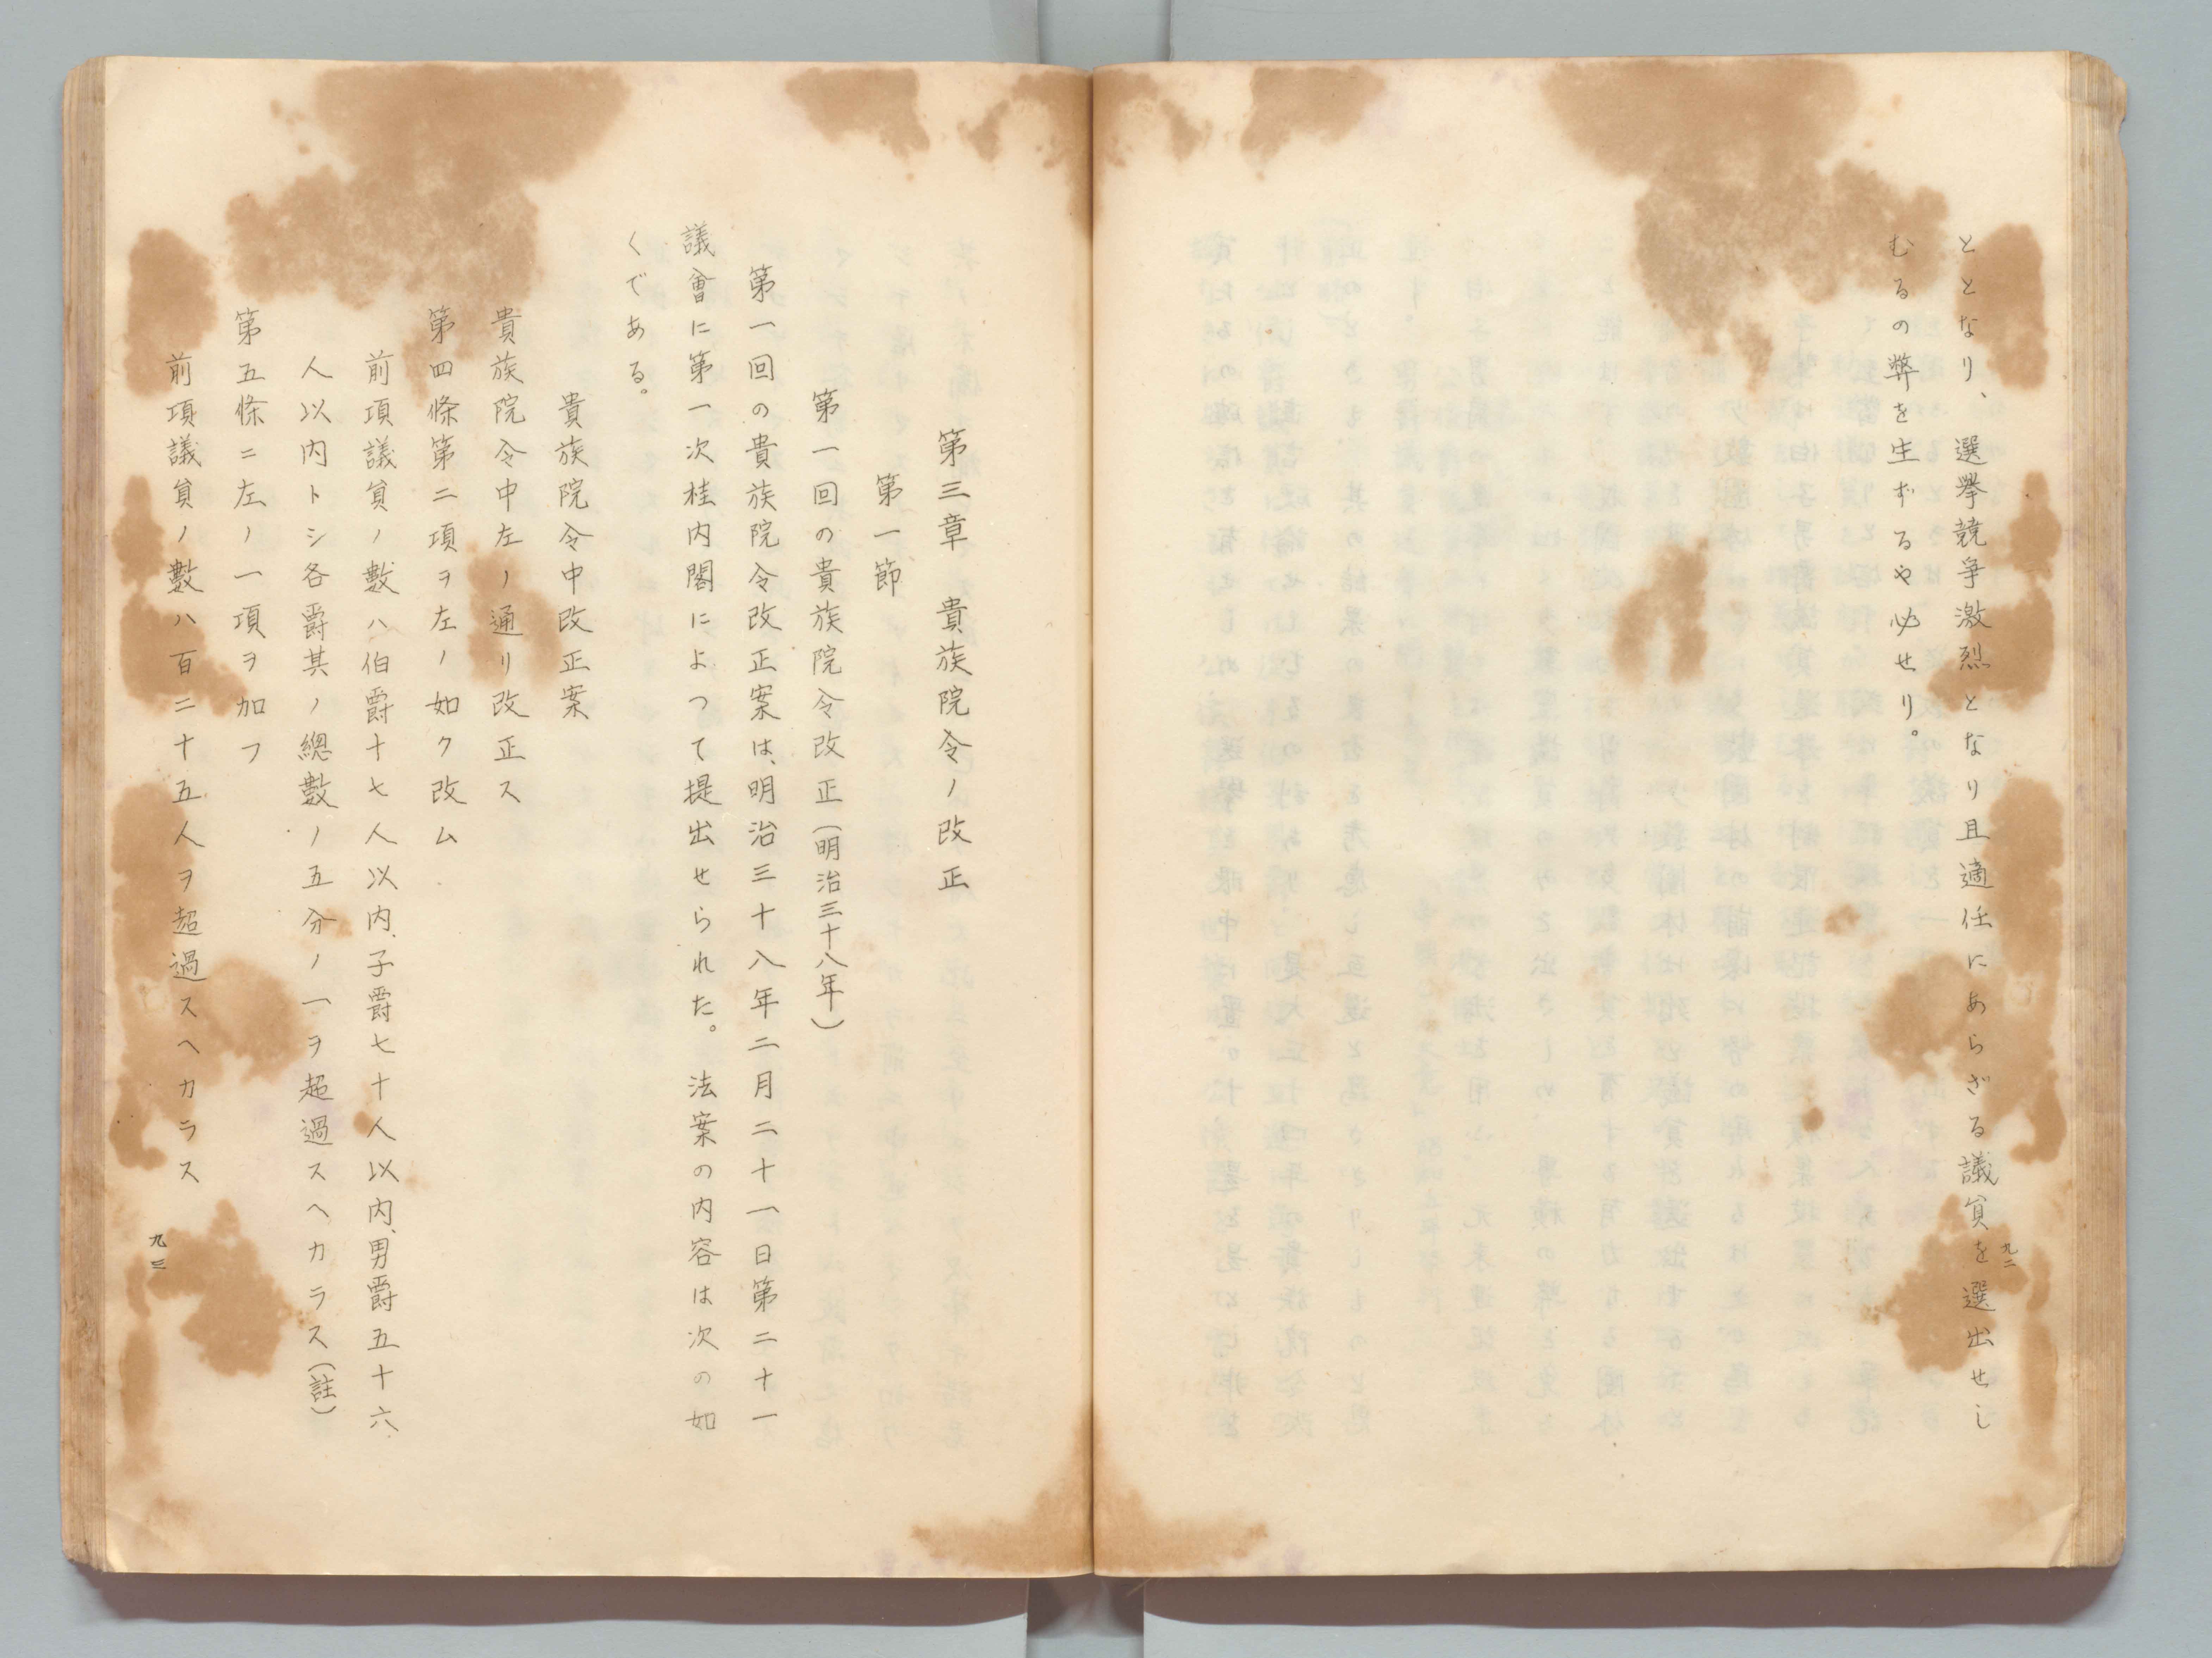 ととなり、選擧競爭激烈となり且適任にあらざる議員を選出せし
むるの弊を生ずるや必せり。
九二
第三章　貴族院令ノ改正
第一節
第一回の貴族院令改正（明治三十八年）
第一回の貴族院令改正案は、明治三十八年二月二十一日第二十一
議會に第一次桂内閣によつて提出せられた。法案の内容は次の如
くである。
貴族院令中改正案
貴族院令中左ノ通リ改正ス
第四條第二項ヲ左ノ如ク改ム
前項議員ノ數ハ伯爵十七人以内、子爵七十人以内、男爵五十六
人以内トシ各爵其ノ總數ノ五分ノ一ヲ超過スヘカラス（註）
第五條ニ左ノ一項ヲ加フ
前項議員ノ數ハ百二十五人ヲ超過スヘカラス
九三